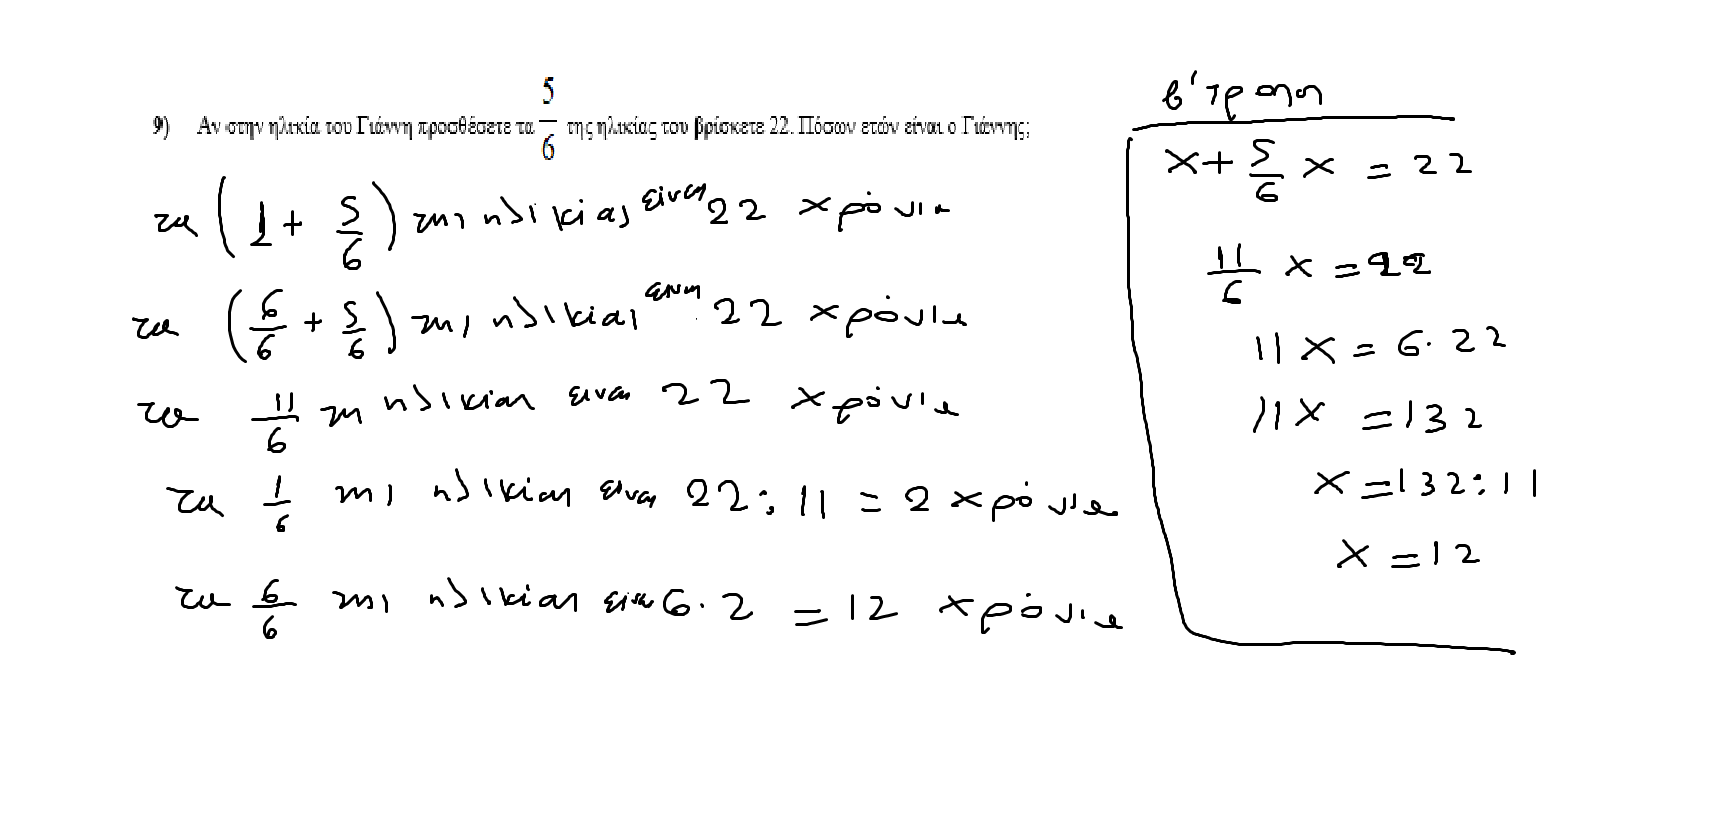 9) Αν στην ηλικία του Γιάννη προσθέσετε τα 5/6 της ηλικίας του βρίσκετε 22. Πόσων ετών είναι ο Γιάννης;
τα (1 + 5/6) της ηλικίας είναι 22 χρόνια
τα (6/6 + 5/6) της ηλικίας είναι 22 χρόνια
τα 11/6 της ηλικίας είναι 22 χρόνια
τα 1/6 της ηλικίας είναι 22 : 11 = 2 χρόνια
τα 6/6 της ηλικίας είναι 6 · 2 = 12 χρόνια
β' τροπη
x + 5/6 x = 22
11/6 x = 22
11x = 6 · 22
11x = 132
x = 132 : 11
x = 12